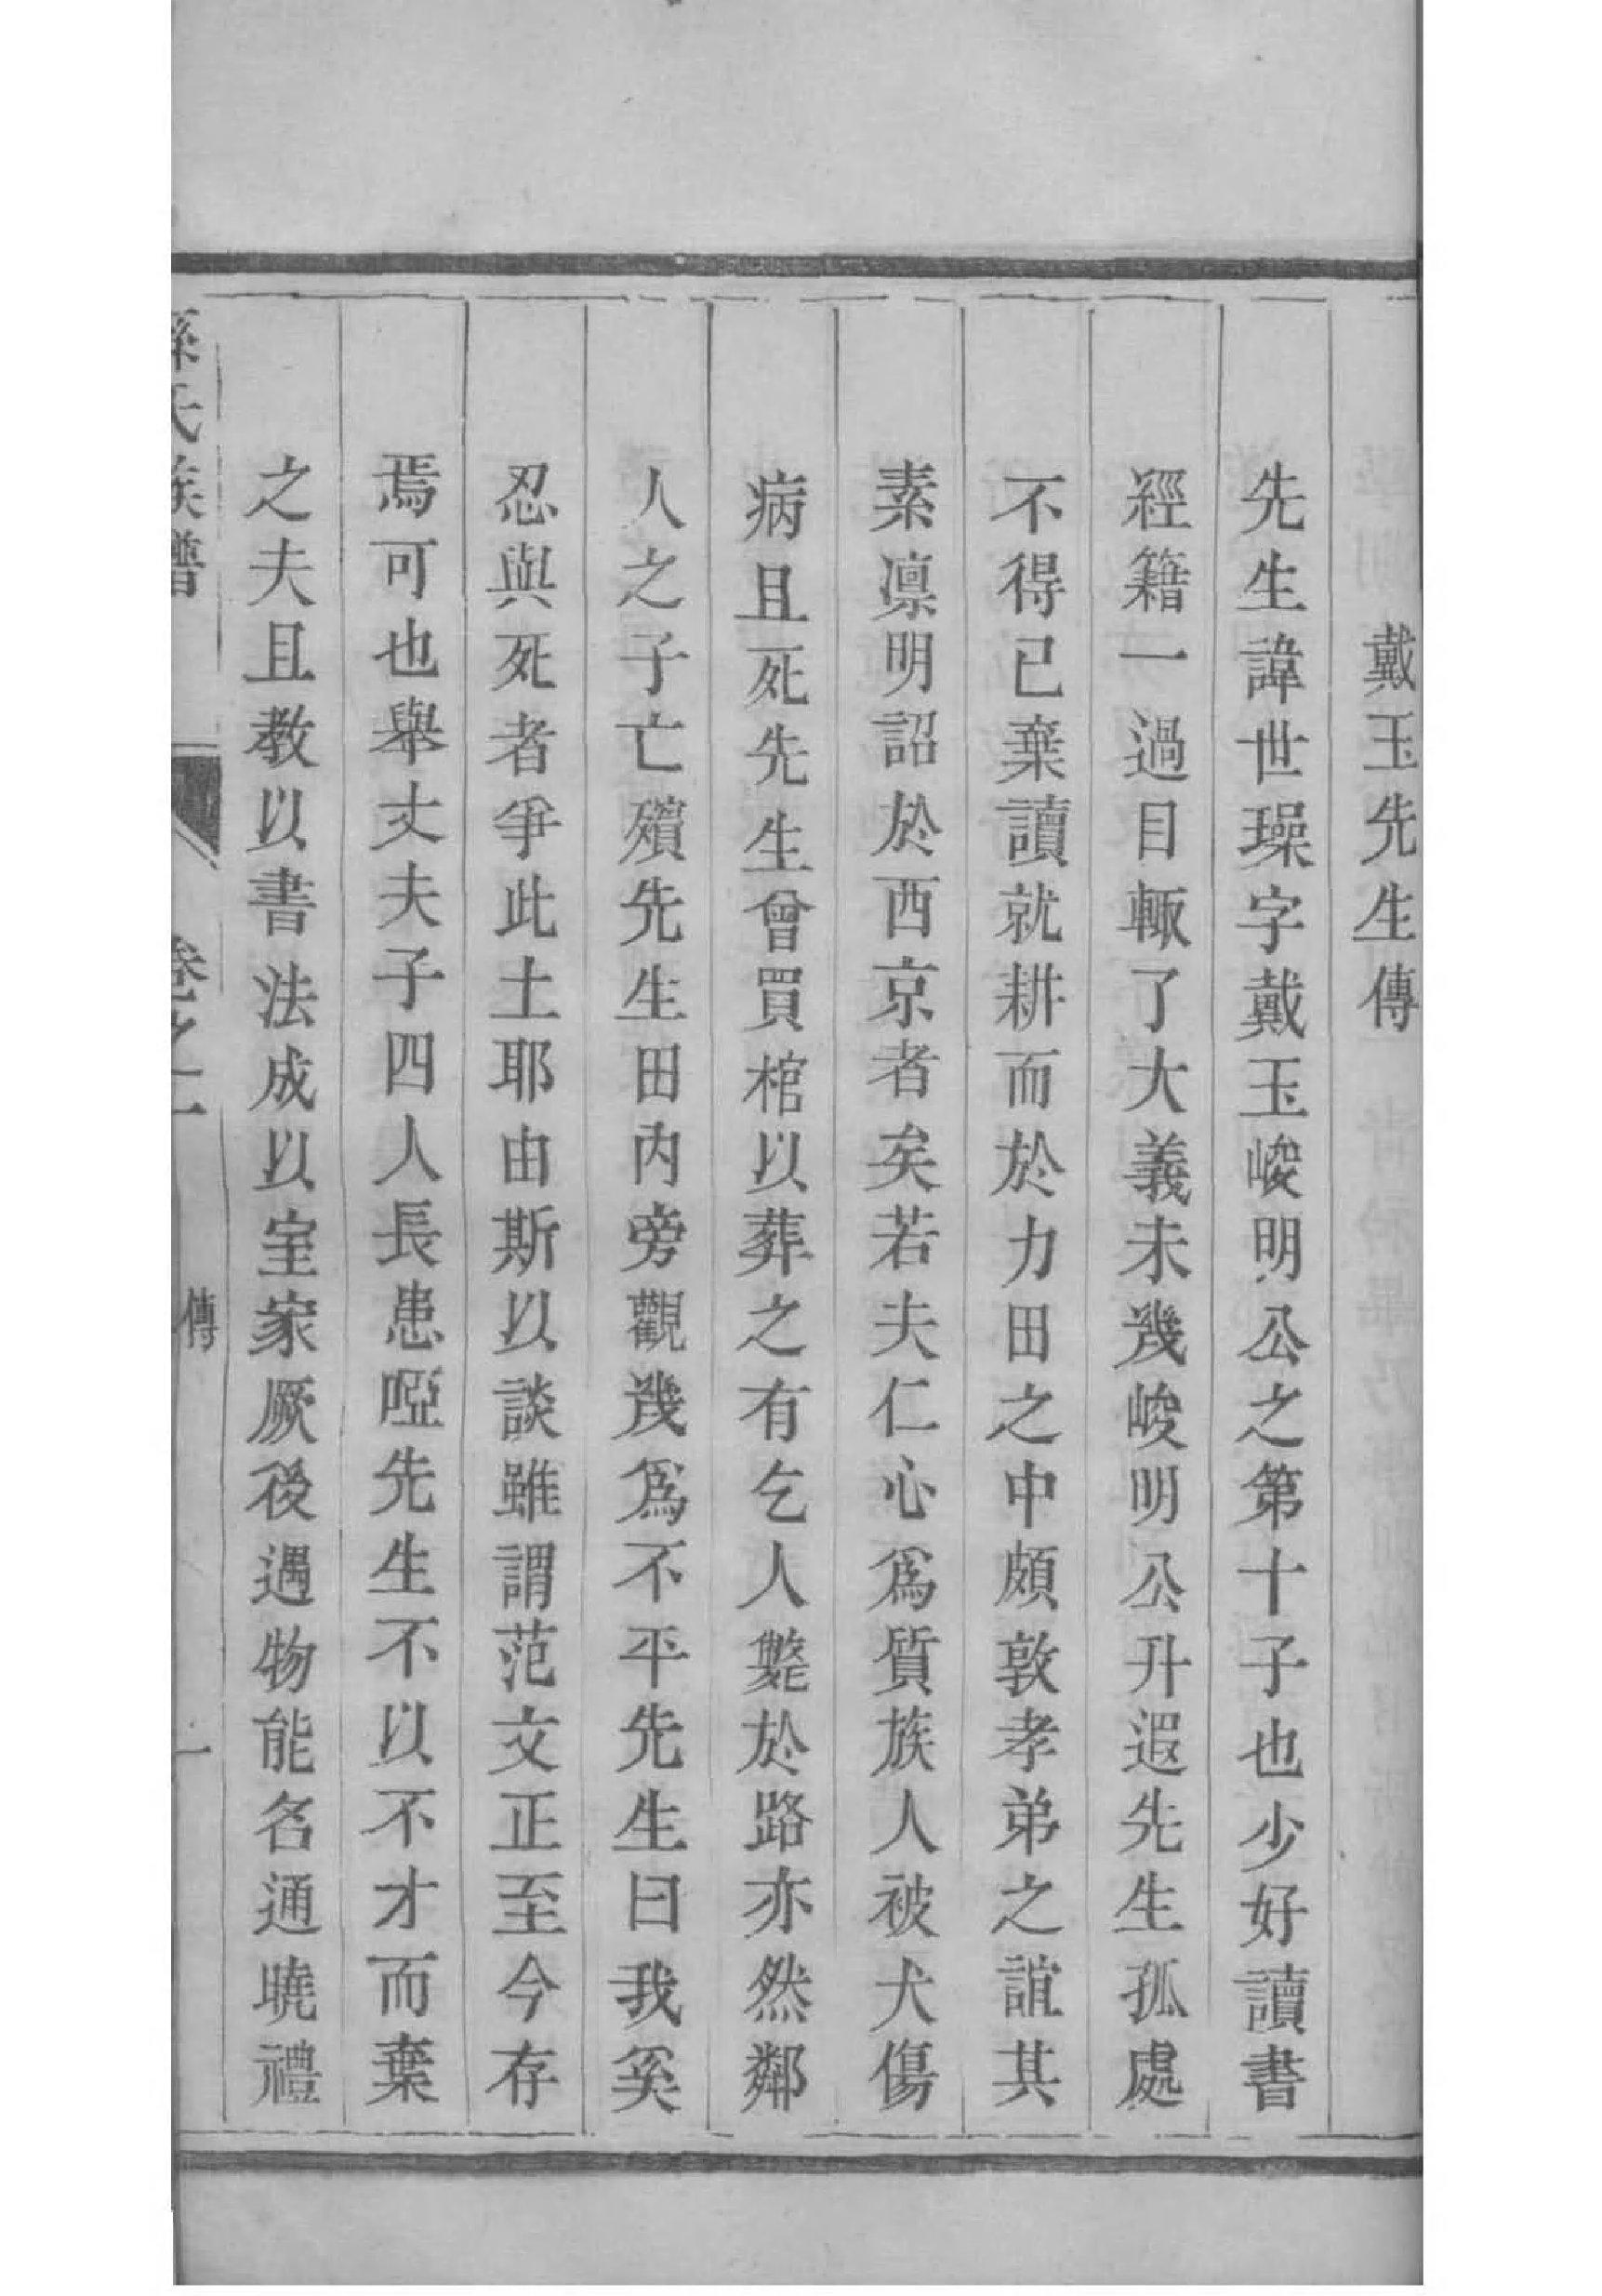 戴玉先生傳
先生諱世璪字戴玉峻明公之第十子也少好讀書
經籍一過目輙了大義未幾峻明公升遐先生孤處
不得已棄讀就耕而於力田之中頗敦孝弟之誼其
素凛明詔於西京者矣若夫仁心爲質族人被犬傷
病且死先生曾買棺以葬之有乞人斃於路亦然鄰
人之子亡殯先生田內旁觀幾爲不平先生曰我奚
忍與死者爭此土耶由斯以談雖謂范文正至今存
焉可也舉丈夫子四人長患啞先生不以不才而棄
之夫且教以書法成以室家厥後遇物能名通曉禮
孫氏族譜 卷之一 傳 一